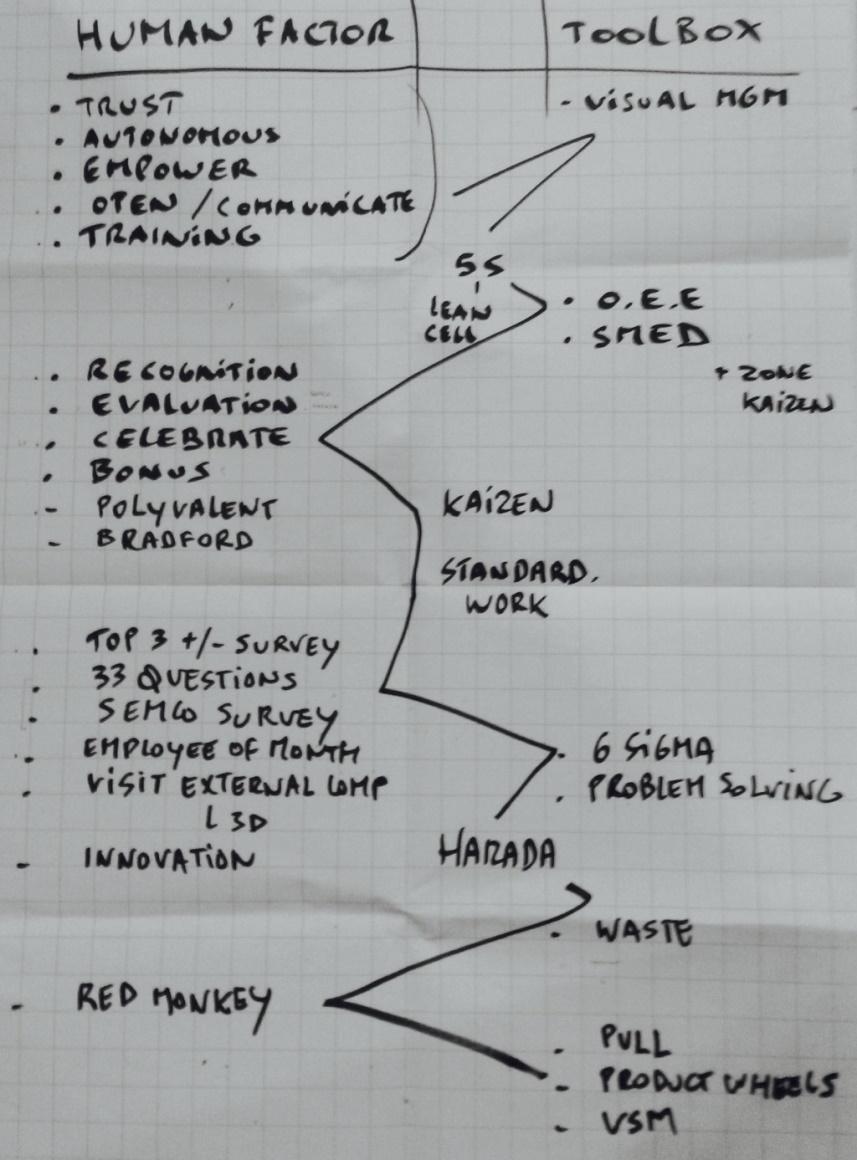 HUMAN FACTOR
TOOLBOX
• TRUST
- VISUAL MGM
• AUTONOMOUS
• EMPOWER
• OPEN / COMMUNICATE
• TRAINING
5S
LEAN
CELL
• O.E.E
• SMED
+ ZONE
KAIZEN
• RECOGNITION
• EVALUATION
• CELEBRATE
• BONUS
- POLYVALENT
- BRADFORD
KAIZEN
STANDARD.
WORK
• TOP 3 +/- SURVEY
• 33 QUESTIONS
• SEMCO SURVEY
• EMPLOYEE OF MONTH
• VISIT EXTERNAL COMP
L 3D
- INNOVATION
• 6 SIGMA
• PROBLEM SOLVING
HARADA
• WASTE
- RED MONKEY
- PULL
- PRODUCT WHEELS
- VSM